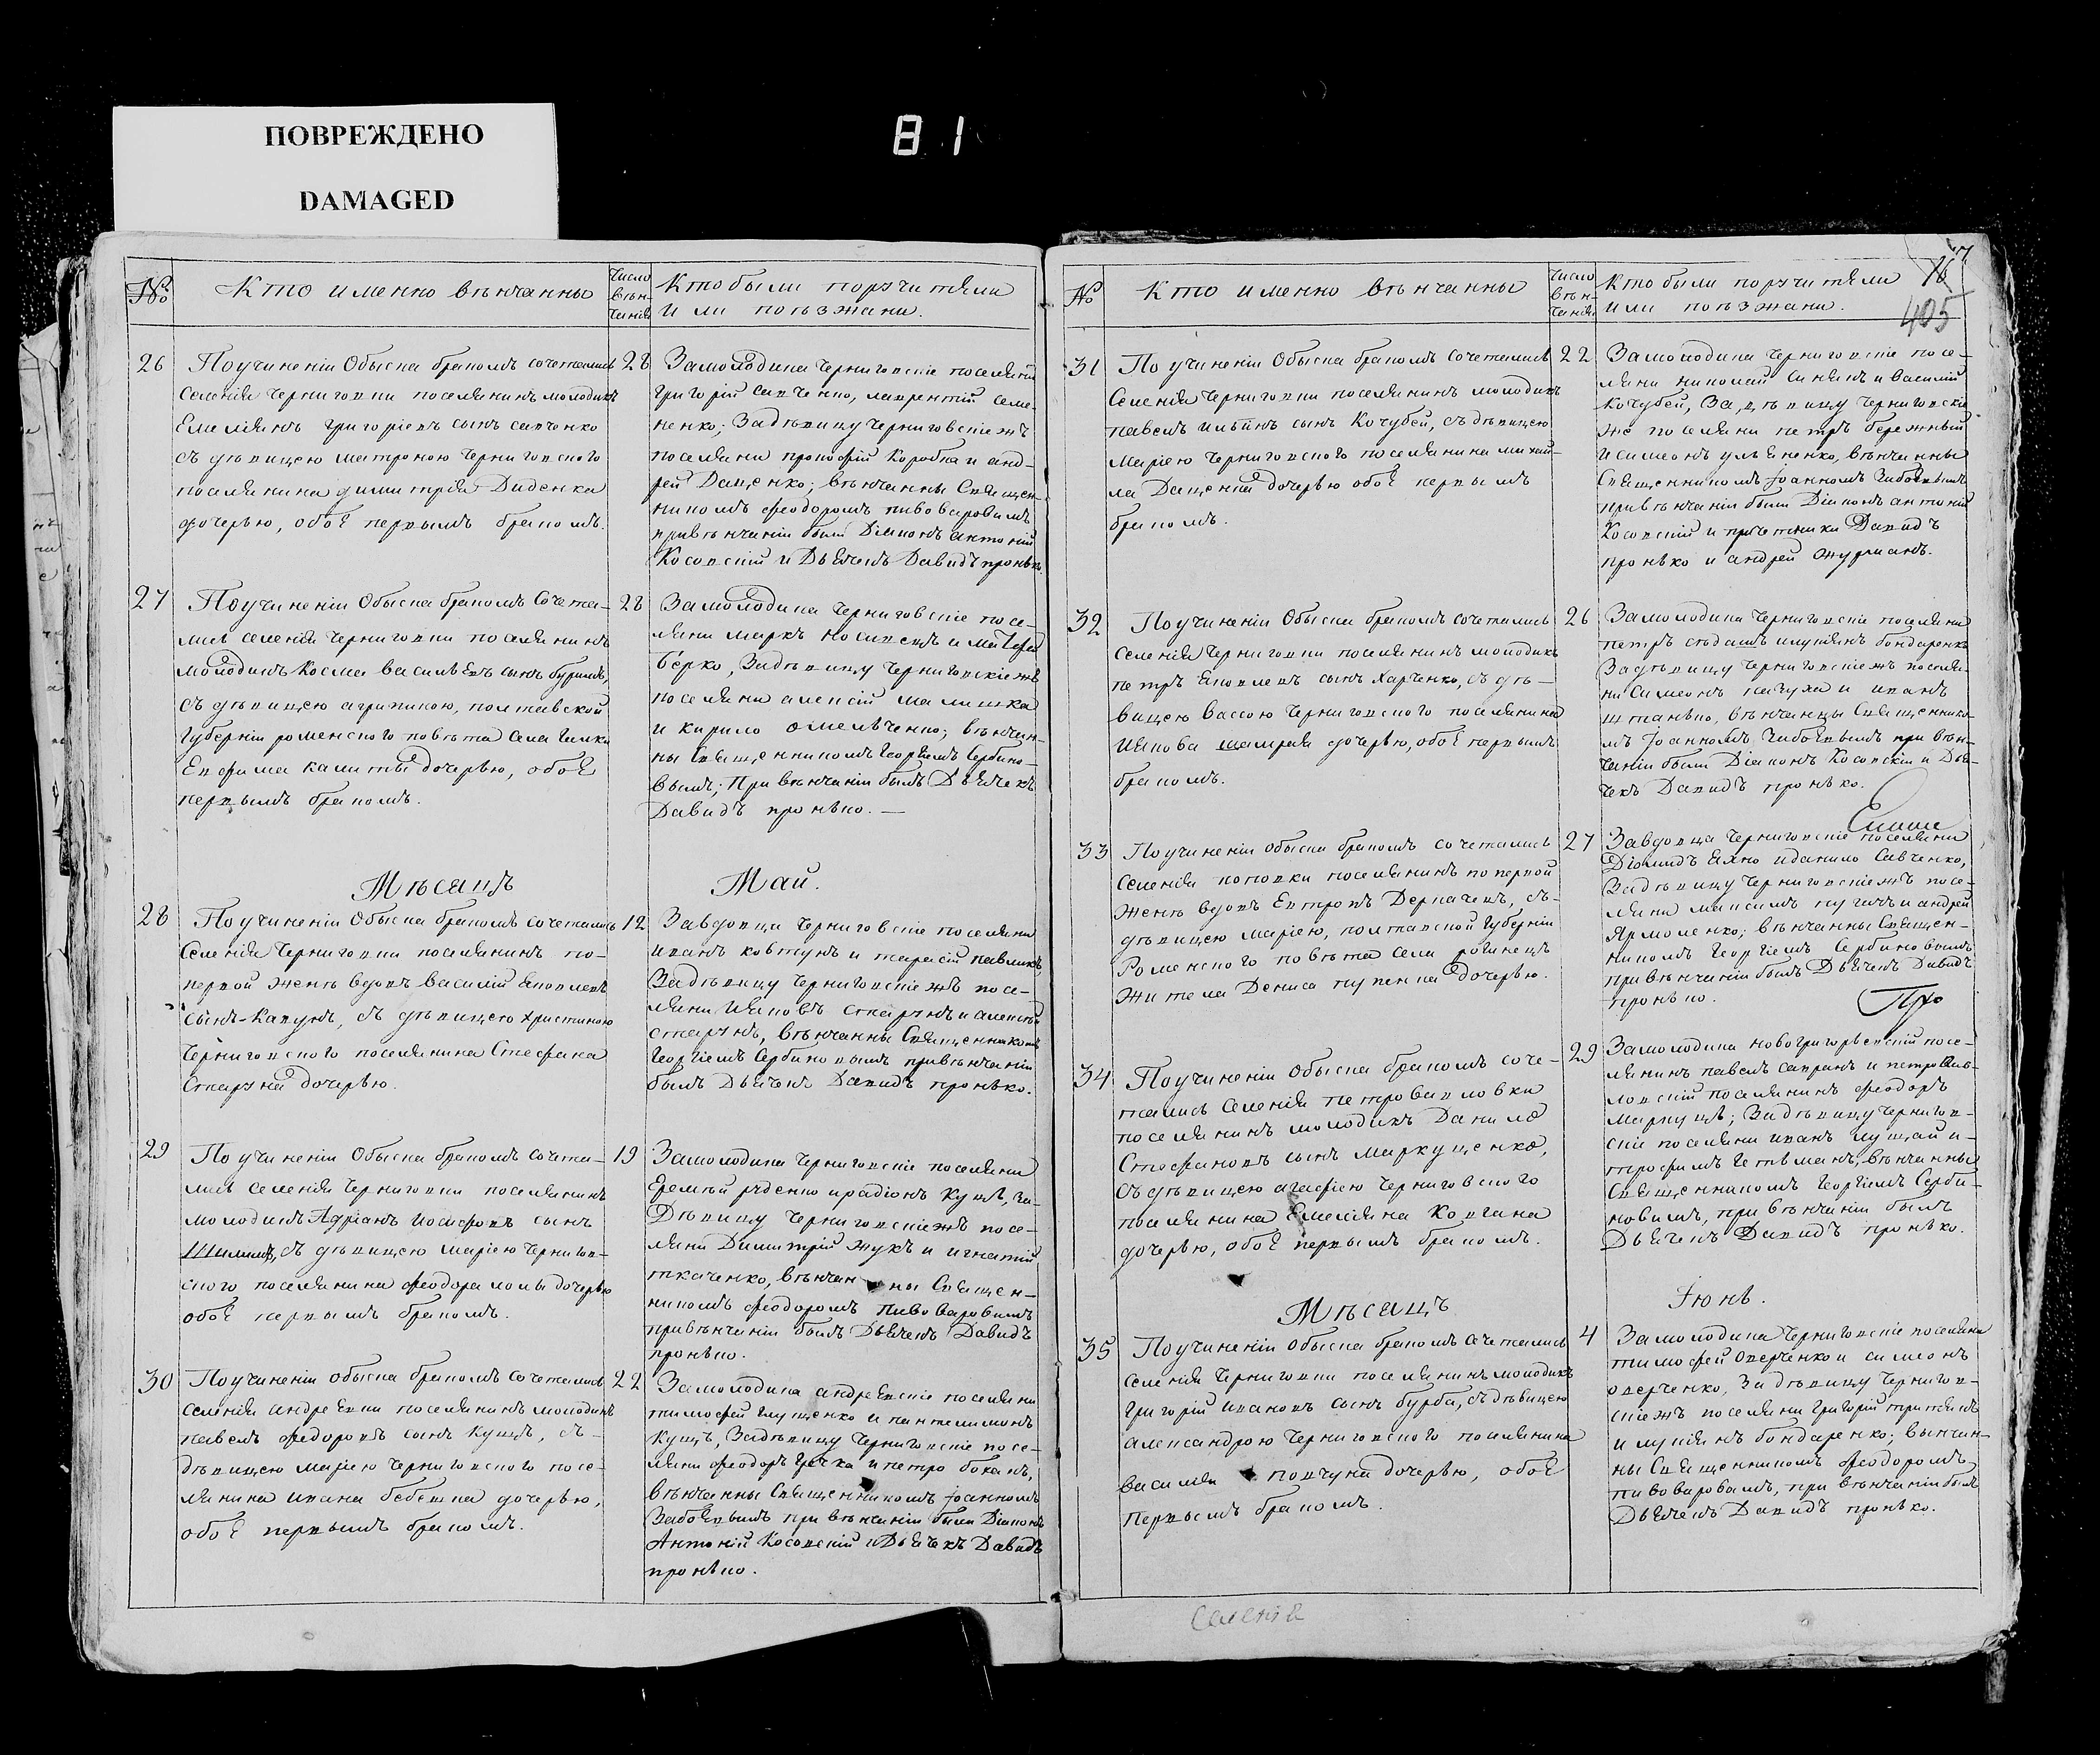 ПОВРЕЖДЕНО
DAMAGED
81
№
Кто именно вѣнчанны
Число
вѣн-
чанія
Кто были поручители
или поѣзжани.
26
Поучиненіи Обыска бракомъ сочетались
Селенія Черниговки поселянинъ молодикъ
Емеліянъ григоріевъ сынъ савченко
съ дѣвицею матроною Черниговского
поселянина димитрія Диденка
дочерью, обоѣ первымъ бракомъ.
28
Замолодика Черниговскіе поселяни
григорій савченко, лаврентій семе-
ненко; Задѣвицу Черниговскіежъ
поселяни прокофій Коробка и анд-
рей Даценко; вѣнчанны Священ-
никомъ феодоромъ пивоваровымъ
привѣнчаніи были Діяконъ антоній
Косовскій и Дьячекъ Давидъ пронько
27
Поучиненіи Обыска бракомъ Сочета-
лись селенія Черниговки поселянинъ
молодикъ Косма васильевъ сынъ бурымъ,
съ дѣвицею агрипиною, полтавской
губерніи роменского повѣта села Гилки
Евфима калиты дочерью, обоѣ
первымъ бракомъ.
28
Замолодика Черниговскіе посе-
ляни маркъ носивецъ и матфей
берко, Задѣвицу Черниговскіежъ
поселяни алексій малишка
и кирило омельченко; вѣнчан-
ны Священникомъ Георгіемъ Сербино-
вымъ; При вѣнчаніи былъ Дьячекъ
Давидъ пронько. —
Мѣсяцъ
Май.
28
Поучиненіи Обыска бракомъ сочетались
Селенія Черниговки поселянинъ по-
первой женѣ вдовъ василій яковлевъ
сынъ-Кавунъ, съ дѣвицею христиною
Черниговского поселянина Стефана
Старуна дочерью.
12
Завдовца Черниговскіе поселяни
иванъ ковтунъ и тарасій павликъ,
Задѣвицу Черниговскіежъ посе-
ляни Ияковъ старунъ и алексѣй
старунъ, вѣнчанны Священникомъ
Георгіемъ Сербиновымъ привѣнчаніи
былъ Дьячекъ Давидъ пронько.
29
Поучиненіи Обыска бракомъ сочета-
лись селенія Черниговки поселянинъ
молодикъ Адріанъ Иосифовъ сынъ
съ дѣвицею маріею Чернигов-
ского поселянина феодора ломы дочерью
обоѣ первымъ бракомъ.
19
Замолодика Черниговскіе поселяни
Еремѣй руденко ирадіонъ Куцъ, За-
Дѣвицу Черниговскіежъ посе-
ляни Димитрій жукъ и игнатій
ткаченко, вѣнчан ны Священ-
никомъ феодоромъ пивоваровымъ
привѣнчаніи былъ Дьячекъ Давидъ
пронько.
30
Поучиненіи обыска бракомъ сочетались
селенія андреевки поселянинъ молодикъ
павелъ федоровъ сынъ Куцъ, съ-
дѣвицею маріею Черниговского посе-
лянина ивана бебешка дочерью,
обоѣ первымъ бракомъ.
22
Замолодика андреевскіе поселяни
тимофей глущенко и пантелимонъ
Куцъ, Задѣвицу Черниговскіе посе-
ляни феодоръ гречка ипетро боканъ,
вѣнчанны Священникомъ Іоанномъ
Забоевымъ при вѣнчаніи были Діаконъ
Антоній Косовскій и Дьячекъ Давидъ
пронько.
77
16
405
№
Кто именно вѣнчанны
Число
вѣн-
чанія
Кто были поручители
или поѣзжани.
31
По учиненіи Обыска бракомъ Сочетались
Селенія Черниговки поселянинъ молодикъ
павелъ ильинъ сынъ Кочубей, съ дѣвицею
маріею Черниговского поселянина михай-
ла Даценка дочерью обоѣ первымъ
бракомъ.
22
Замолодика Черниговскіе посе-
ляни николай синякъ и василій
Кочубей, За, дѣвицу Черниговскіе
же поселяни петръ бережный
и симеонъ ульяненко, вѣнчанны
Священникомъ Іоанномъ Чибоевымъ
привѣнчаніи были Діяконъ антоній
Косовскій и причетники Давидъ
пронько и андрей журманъ.
32
Поучиненіи Обыска бракомъ сочетались
селенія Черниговки поселянинъ молодикъ
петръ яковлевъ сынъ Харченко, съ дѣ-
вицею вассою Черниговского поселянина
Иякова шамрая дочерью, обоѣ первымъ
бракомъ.
26
Замолодика Черниговскіе поселяни
петръ сѣдашъ илукіянъ бондаренко
Задѣвицу Черниговскіежъ поселя-
ни Симеонъ папуха и иванъ
штанько, вѣнчанны Священнико-
мъ Іоанномъ Чибоевымъ при вѣн-
чаніи были Діаконъ Косовскій и Дья-
чекъ Давидъ пронько.
33
Поучиненіи обыска бракомъ сочетались
Селенія поповки поселянинъ попервой
женѣ вдовъ Евтропъ Деркачевъ, съ-
дѣвицею маріею, полтавской губерніи
Роменского повѣта села рогинецъ
жителя Дениса пупенка дочерью.
27
Завдовца Черниговскіе поселяни
Діомидъ яхно иданило Савченко,
Задѣвицу Черниговскіежъ посе-
ляни максимъ пугачъ и андрей
Ярмоленко; вѣнчанны Священ-
никомъ Георгіемъ Сербиновымъ
привѣнчаніи былъ Дьячекъ Давидъ
пронько.
34
Поучиненіи Обыска бракомъ соче-
тались селенія петровавловки
поселянинъ молодикъ Данило
Стефановъ сынъ маркущенко,
съ дѣвицею агафіею Черниговского
поселянина Емеліяна Ковгана
дочерью, обоѣ первымъ бракомъ.
29
Замолодика новогригорьевскій посе-
лянинъ павелъ сапранъ и петропав-
ловскій поселянинъ феодоръ
маркуця; Задѣвицу Чернигов-
скіе поселяни иванъ лущай и-
трофимъ гетьманъ, вѣнчанны
Священникомъ Георгіемъ Серби-
новымъ, при вѣнчаніи былъ
Дьячекъ Давидъ пронько.
Мѣсяцъ
Іюнь.
35
Поучиненіи обыска бракомъ сочетались
селенія Черниговки поселянинъ молодикъ
григорій ивановъ сынъ бурба, съ дѣвицею
александрою Черниговского поселянина
василія повчуна дочерью, обоѣ
первымъ бракомъ.
4
Замолодика Черниговскіе поселяни
тимофей оверченко и симеонъ
оверченко, Задѣвицу Чернигов-
скіежъ поселяни григорій тритякъ
и лукіянъ бондаренко; вынчан-
ны Священникомъ феодоромъ
пивоваровымъ, при вѣнчаніи былъ
Дьячекъ Давидъ пронько.
Селенія